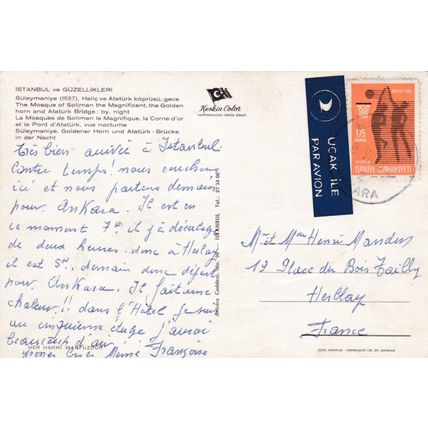 İSTANBUL ve GÜZELLİKLERİ
Süleymaniye (1557), Haliç ve Atatürk köprüsü, gece
The Mosque of Soliman the Magnificent, the Golden
horn and Atatürk Bridge: by night
La Mosquée de Soliman le Magnifique, la Corne d'or
et le Pont d'Atatürk, vue nocturne
Süleymaniye, Goldener Horn und Atatürk - Brücke
in der Nacht
Keskin Color
Très bien arrivée à Istanbul
Contre temps! nous couchons
ici et nous partons demain
pour Ankara. Il est en
ce moment 7h il y a décalage
de deux heures. donc à Herblay
il est 5h. demain donc départ
pour Ankara. Il fait une
chaleur!! dans l'Hôtel je suis
au cinquième étage j'aurai
beaucoup d'air
Françoise
HER HAKKI MAHFUZDUR
İSTANBUL
UÇAK İLE
PAR AVION
175
POSTA
TÜRKİYE CUMHURİYETİ
ARA
M. et Mme Henri
17 Place du Bois
Herblay
France